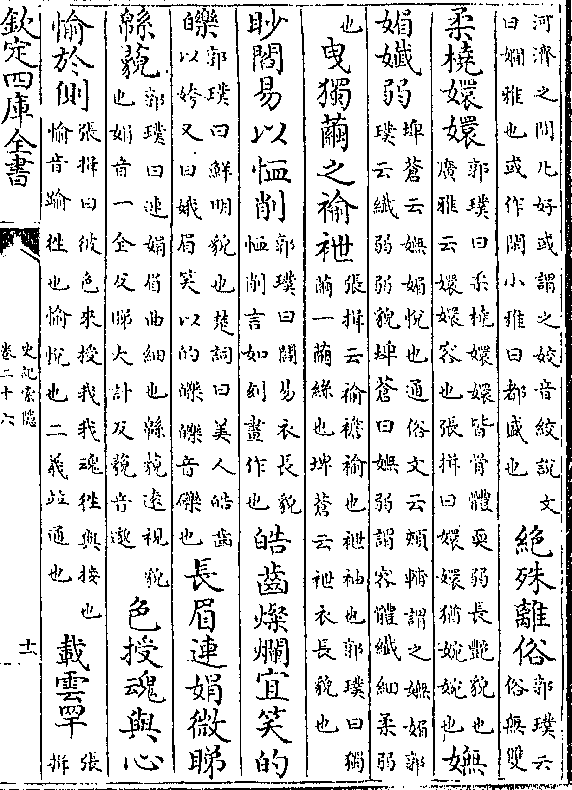 河濟之間凡好或謂之姣音絞說文
曰嫺雅也或作閑小雅曰都盛也
絕殊離俗
郭璞云
俗無雙
柔橈嬛嬛
郭璞曰柔橈嬛嬛皆骨體耎弱長艷貌也
廣雅云嬛嬛容也張揖曰嬛嬛猶婉婉也
嫵
媚孅弱
埤蒼云嫵媚悅也通俗文云頰輔謂之嫵媚郭
璞云纖弱弱貌埤蒼曰嫵弱謂容體纖細柔弱
也
曳獨繭之褕袣
張揖云褕襜褕也袣袖也郭璞曰獨
繭一繭絲也埤蒼云袣衣長貌也
眇閻易以恤削
郭璞曰閻易衣長貌
恤削言如刻畫作也
皓齒燦爛宜笑的
皪
郭璞曰鮮明貌也楚詞曰美人皓齒
以姱又曰娥眉笑以的皪皪音礫也
長眉連娟微睇
緜藐
郭璞曰連娟眉曲細也緜藐遠視貌
也娟音一全反睇大計反藐音邈
色授魂與心
愉於側
張揖曰彼色來授我我魂往與接也
愉音踰往也愉悅也二義並通也
載雲䍐
張
揖
欽定四庫全書
史記索隱
卷二十六
十一